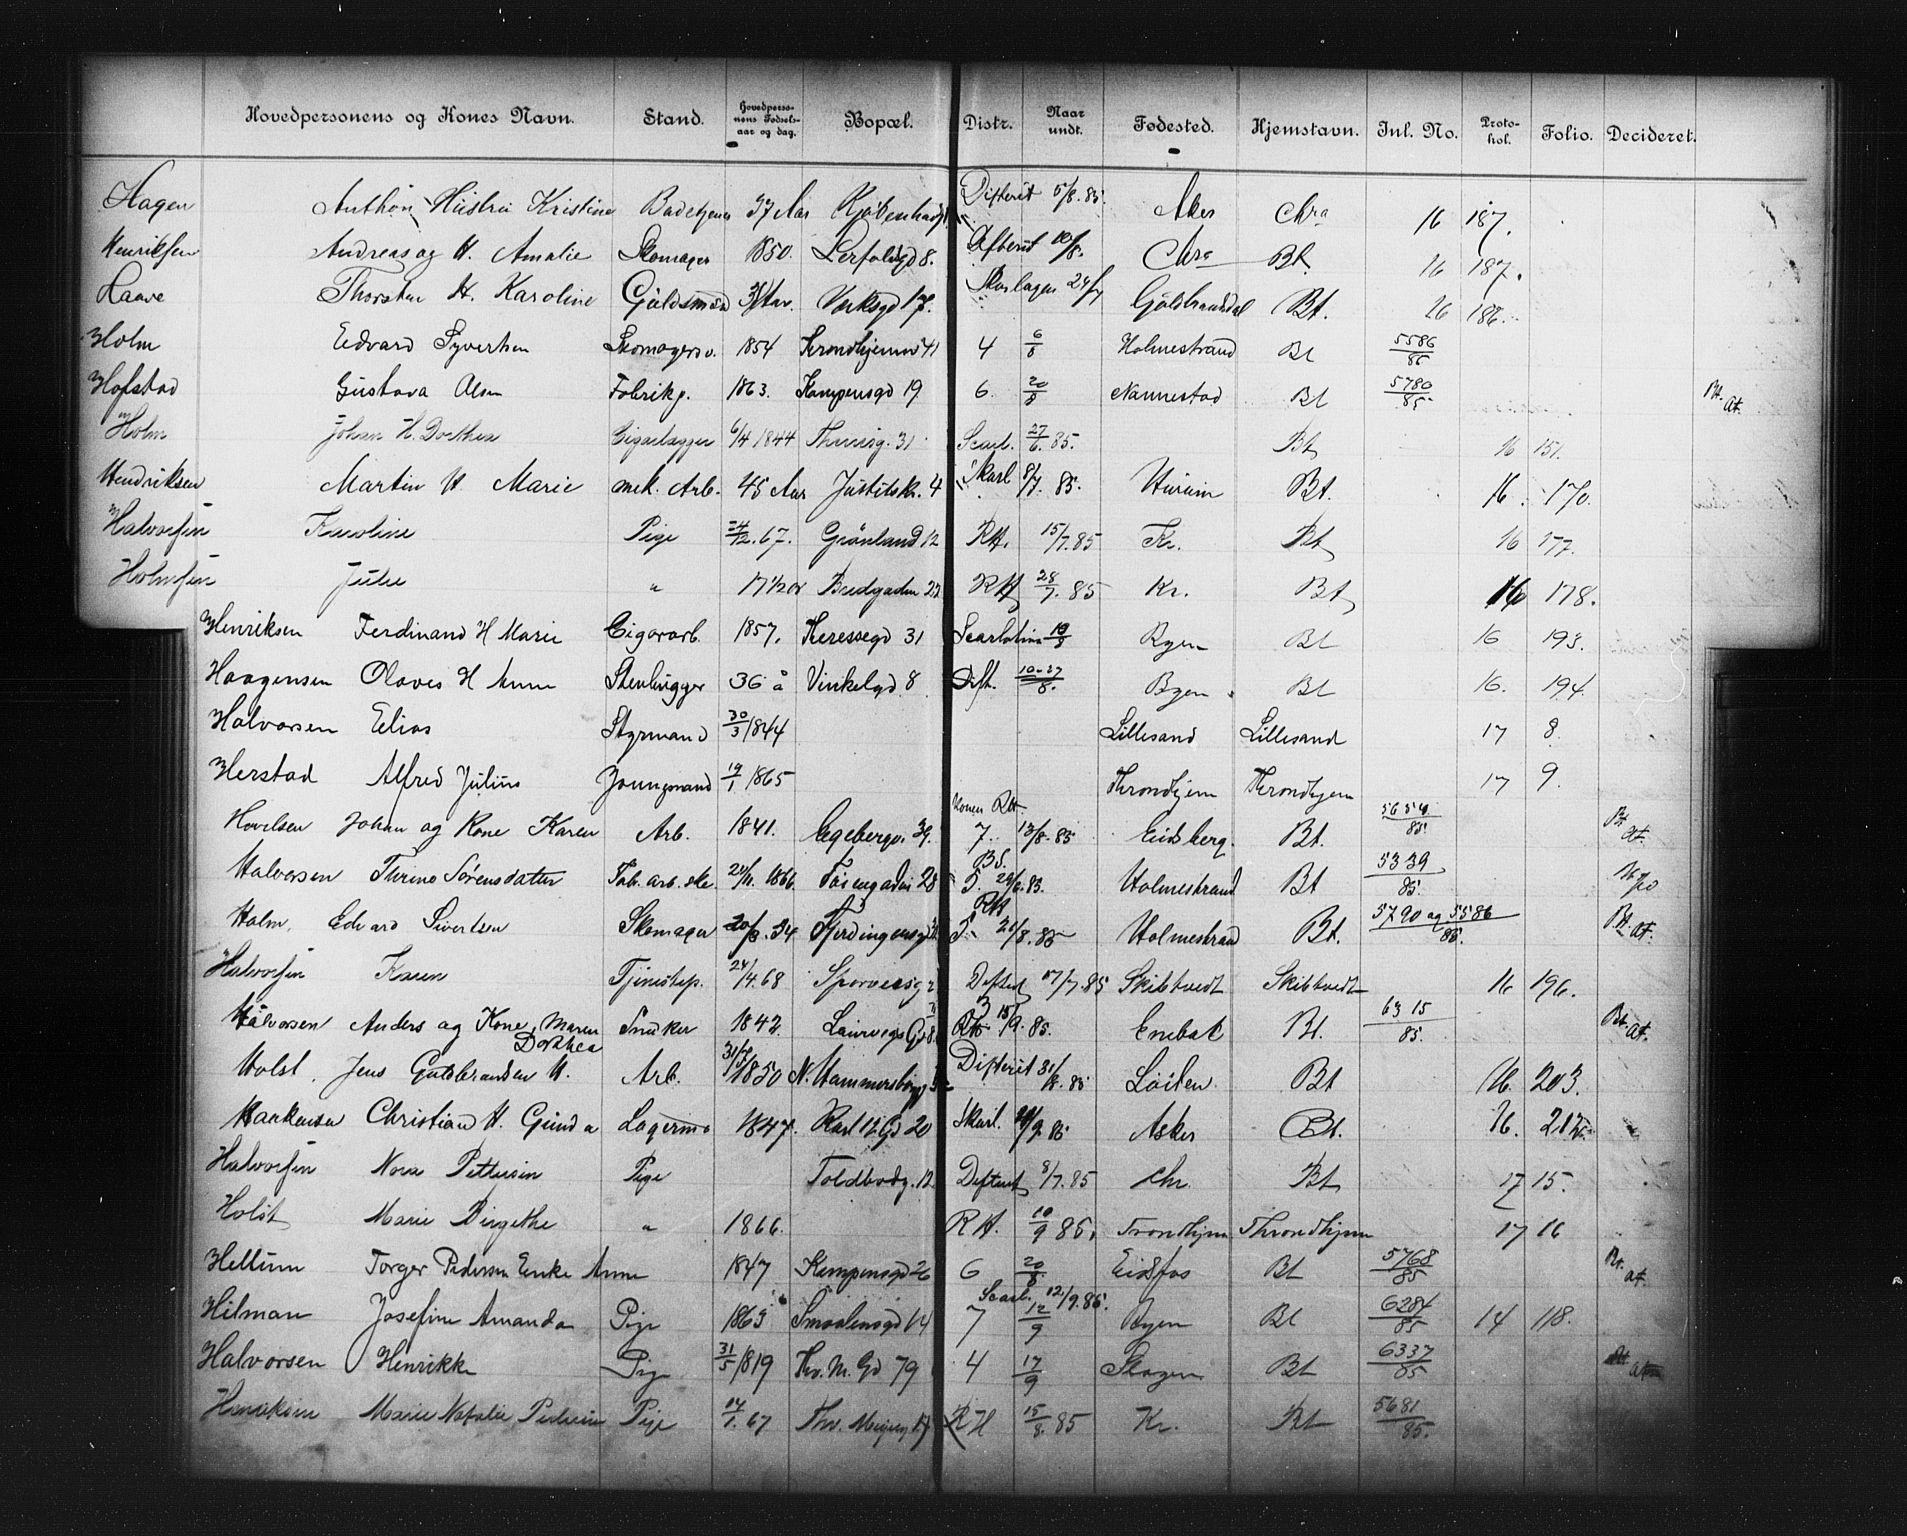 Hovedpersonens og Kones Navn. Stand. Hovedpersonens Fødselsaar og dag. Bopæl. Distr. Naar undt. Fødested. Hjemstavn. Inl. No. Protokol. Folio. Decideret.
Hagen Anthon Hustru Kristine 37 Aar Difterit 5/8. 85. Aker Chra 16 187.
Henriksen Andreas og H. Amalie Skomager 1850. 8. 10/8. Chra Bt. 16 187.
Haave Thorsten H. Karoline Skarlagen 24/7 Güldbrandsdal Bt. 16 186.
Holm Edvard Syvertsen Skomagersv. 1854 Throndhjemsv 41 4 6/8 Holmestrand Bt 5586/85
Hofstad Gustava Olsen Fabrikp. 1863. Kampensgd 19 6. 20/8 Nannestad Bt 5780/85 Bt. at.
Holm Johan H. Dorthea 6/4 1844 31 Scarl. 27/6. 85. Bt 16 151.
Hendriksen Martin H. Marie mek. Arb. 45 Aar Justitskr. 4 Skarl 8/7. 85. Hurum Bt. 16. 170.
Halvorsen Karoline Pige 67. Grønland 12 RH. 15/7. 85 Kr. Bt 16 177.
Julie " 17 1/2 Bredgaden 22 RH 28/7. 85 Kr. Bt 16 178.
Henriksen Ferdinand H Marie Cigararb. 1857. Theresegd 31 Scarlatina 19/8 Byen Bt 16 193.
Haagensen Olaves H Anne Stenhugger 36 å Vinkelgd 8 Dift. 10-27/8. Byen Bt 16. 194.
Halvorsen Elias Styrmand 30/3 1844 Lillesand Lillesand 17 8.
Herstad Alfred Julius Joungmand 19/1 1865 Throndhjem Throndhjem 17 9.
Konen RH
Hovelsen Johan og Kone Karen Arb. 1841. Egebergv. 39. 7. 13/8. 85 Eidsberg. Bt. 5654/85 Bt. at.
Halvorsen Thrine Sørensdatter Fab. arb. ske. 1866. 28 Holmestrand Bt 5339/85.
RH
Holm, Edvard Sivertsen Skomager 20/8. 54 Holmestrand Bt. 5790 og 5586/85. Bt. at.
Halvorsen Karen Tjenestep. 24/4. 68 17/7. 85 Skibtvedt Skibtvedt 16 196.
Halvorsen Anders og Kone Maren Dorthea Snedker 1842. 3 15/9. 85. Enebak Bt. 6315/85. Bt. at.
Holst, Jens Guldbrandsen H. Arb. 31/7 1850 N. Hammersborg Difterit 31/8. 85 Løiten Bt 16. 203.
Haakensen Christian H. Gunda Lagerm. 1847. Karl 12 Gd 20 Skarl. Asker Bt. 16. 212.
Halvorsen Nora Pettersen Pige Toldbodg. 12. 8/7. 85 Chr. Bt 17 15.
Holst Marie Birgethe " 1866. RH. 10/9 85. Trondhjem Throndhjem 17 16
Hellum Torger Pedersen Enke Anne 1847 Kampensgd 26 6 20/8 Eidsfos Bt 5768/85 Bt. at.
Scarl. 12/9. 85.
Hilman Josefine Amanda Pige 1863 Smaalensgd 14 7 12/9 Byen Bt 6284/85 14 118.
Halvorsen Henrikke Pige 31/5 1819 Thv. M. Gd 79 4 17/9 Skogen Bt 6337/85 Bt at
Henriksen Marie Natalie Pedersen Pige 14/1. 67 Thv. Meyersg 17 RH 15/8. 85 Kr. Bt 5681/85.